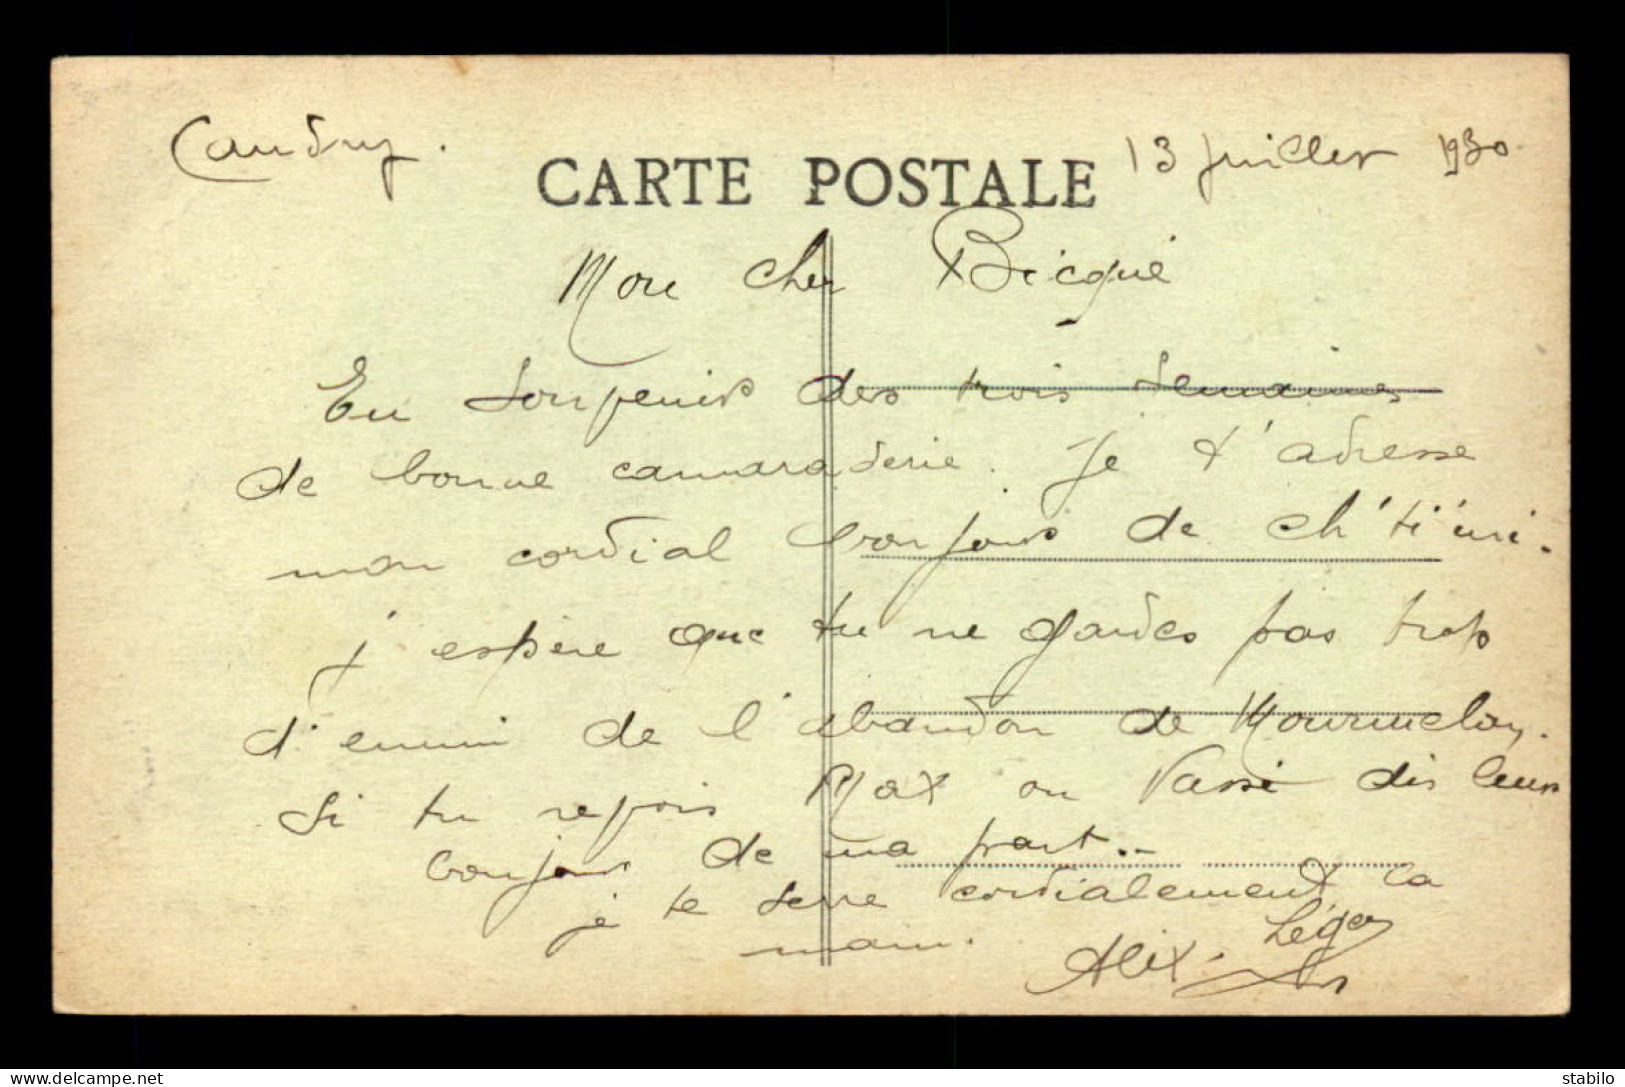 Caudry. 13 Juillet 1930.
CARTE POSTALE
Mon cher Bicqué
En souvenir des trois semaines
de bonne camaraderie. Je t'adresse
mon cordial bonjour de ch'ti'mi.
J'espère que tu ne gardes pas trop
d'ennui de l'abandon de Mourmelon.
Si tu revois Max ou Vassé dis leurs
bonjour de ma part..
je te serre cordialement la
main.
Alix. Léger
stabilo